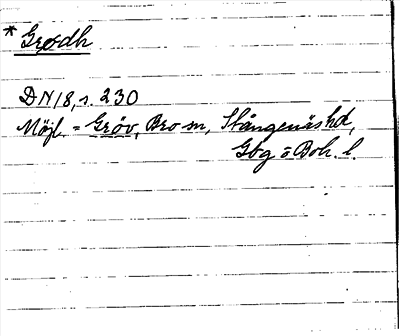 * Grodh
DN 18, s. 230
Möjl. = Gröv, Bro sn, Stångenäs hd,
Gbg o Boh. l.